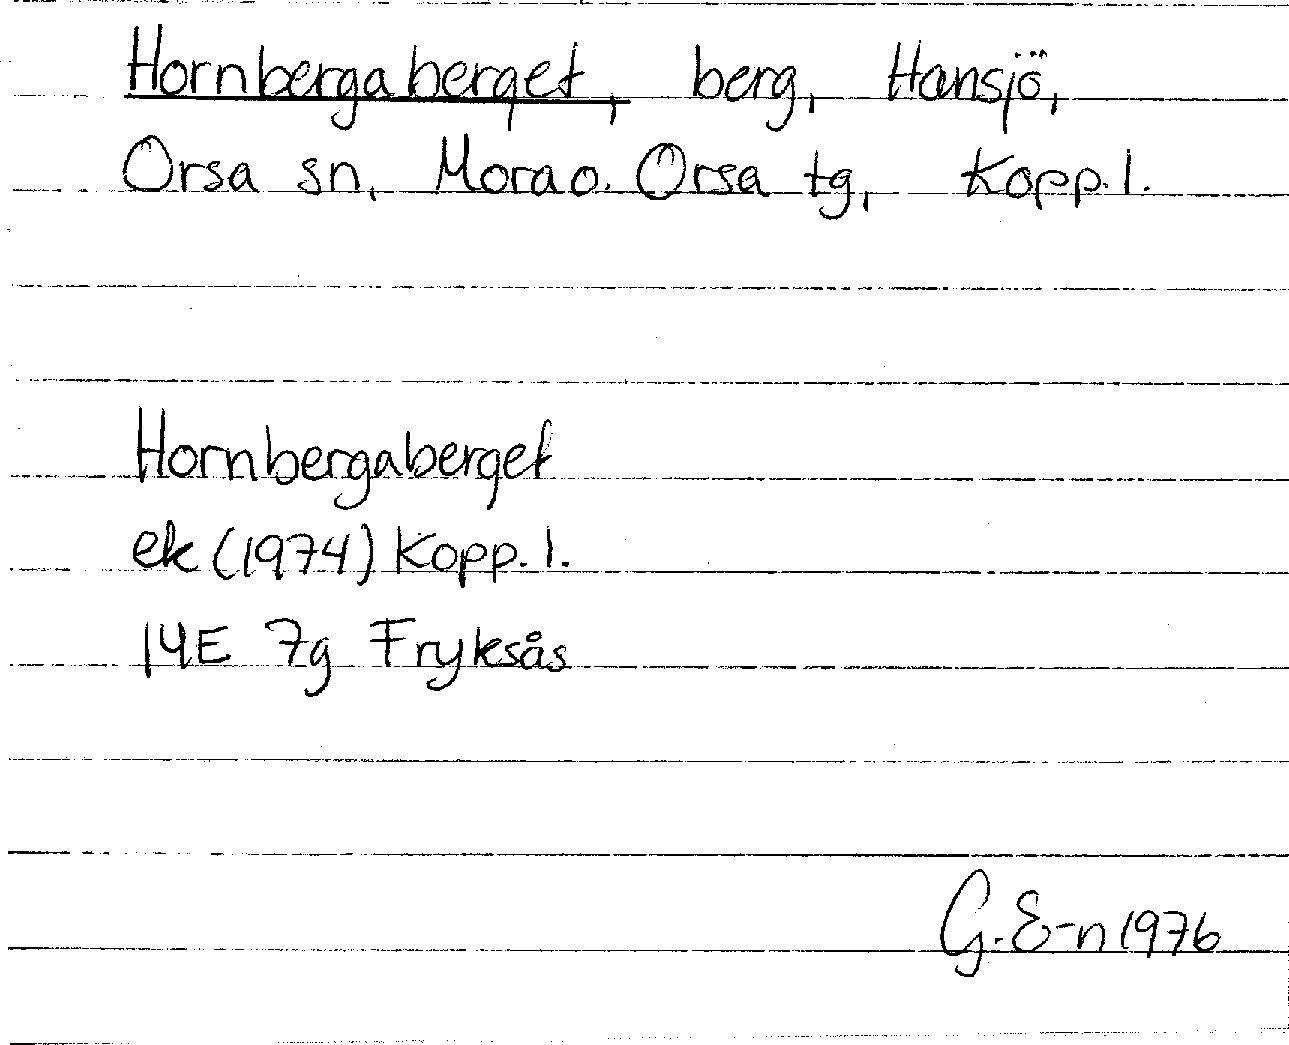 Hornbergaberget, berg, Hansjö,
Orsa sn, Mora o. Orsa tg, Kopp. l.
Hornbergaberget
ek (1974) Kopp. l.
14E 7g Fryksås
G. E-n 1976